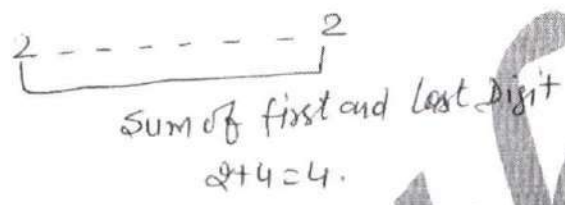 2 - - - - - - 2
Sum of first and Last Digit
2+4=4.